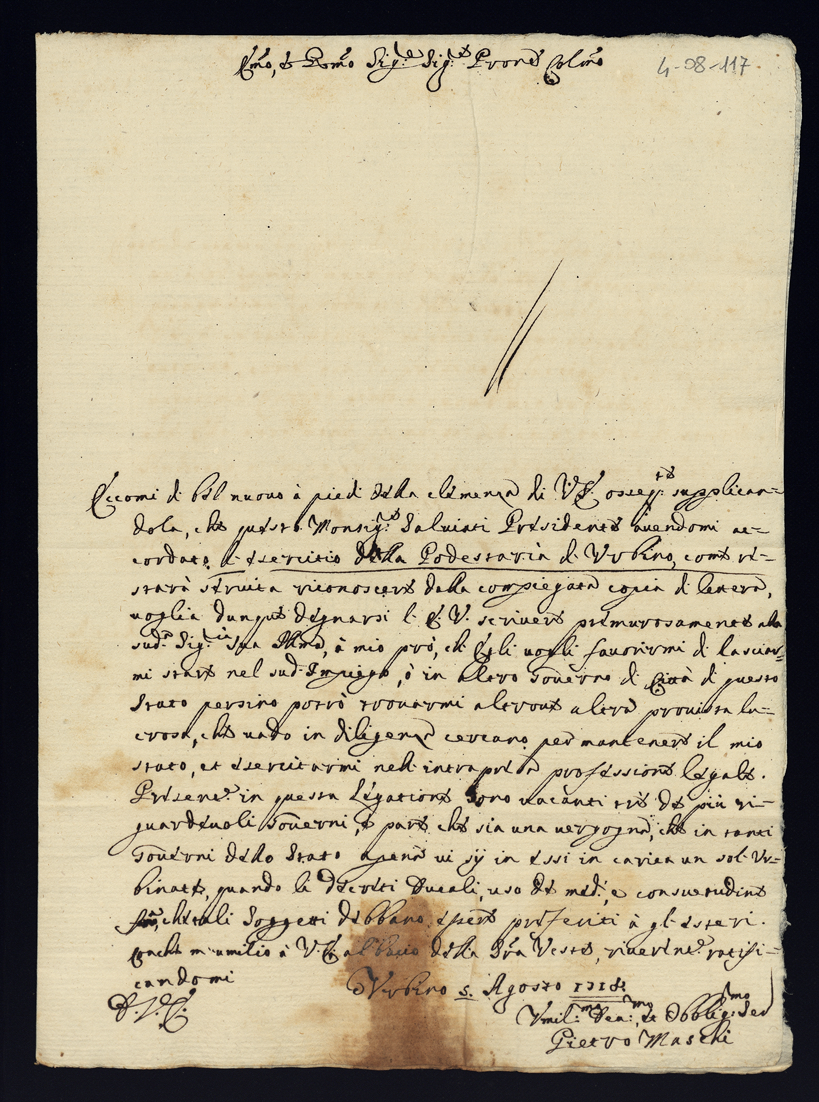 Emo, e Rmo Sig.re Sig.re Prone Colmo
4-08-117
Eccomi di bel nuovo à piedi della clemenza di V.E. osseq.te supplican=
dola, che questo Monsig.re Salviati Presidente avendomi ac=
cordato l'esercitio della Podestaria di Urbino, come re=
starà servita riconoscere dalla compiegata copia di lettera,
voglia dunque degnarsi l'E.V. scrivere premurosamente alla
sud.a Sig.ria sua Illma, à mio prò, ch'Egli vogli favorirmi di lasciar=
mi stare nel sud. Impiego, ò in altro Governo di Città di questo
Stato persino potrò trovarmi altrove altra provista lu=
crosa, che vado in diligenza cercano per mantenere il mio
stato, et esercitarmi nell'intrapresa professione legale.
Presene.te in questa Legatione sono vacanti tre de più ri=
guardevoli Governi, e pare che sia una vergogna, che in tanti
Governi dello Stato apena vi sij in essi in carica un sol Ur=
binate, quando le Decreti Ducali, uso de med.i, e consuetudine
che tali Soggetti debbano essere preferiti à gl'esteri.
m'umilio à V.E. al bacio della Sra Veste, riverine.te ratifi=
candomi
D.V.E.
Urbino 5. Agosto 1718.
Umil.mo Dev.mo, et Obblig.mo Ser
Pietro Maschi